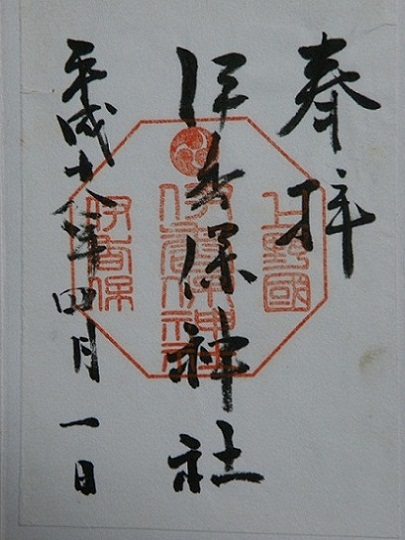 奉拝
上野國
伊香保神社
伊香保神社
平成十八年四月一日
伊香保